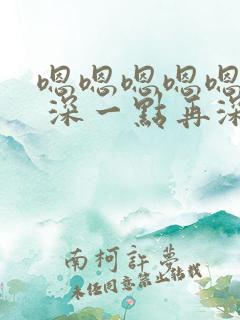 嗯嗯嗯嗯嗯
深一點再深
南柯許夢
未经同意禁止转载